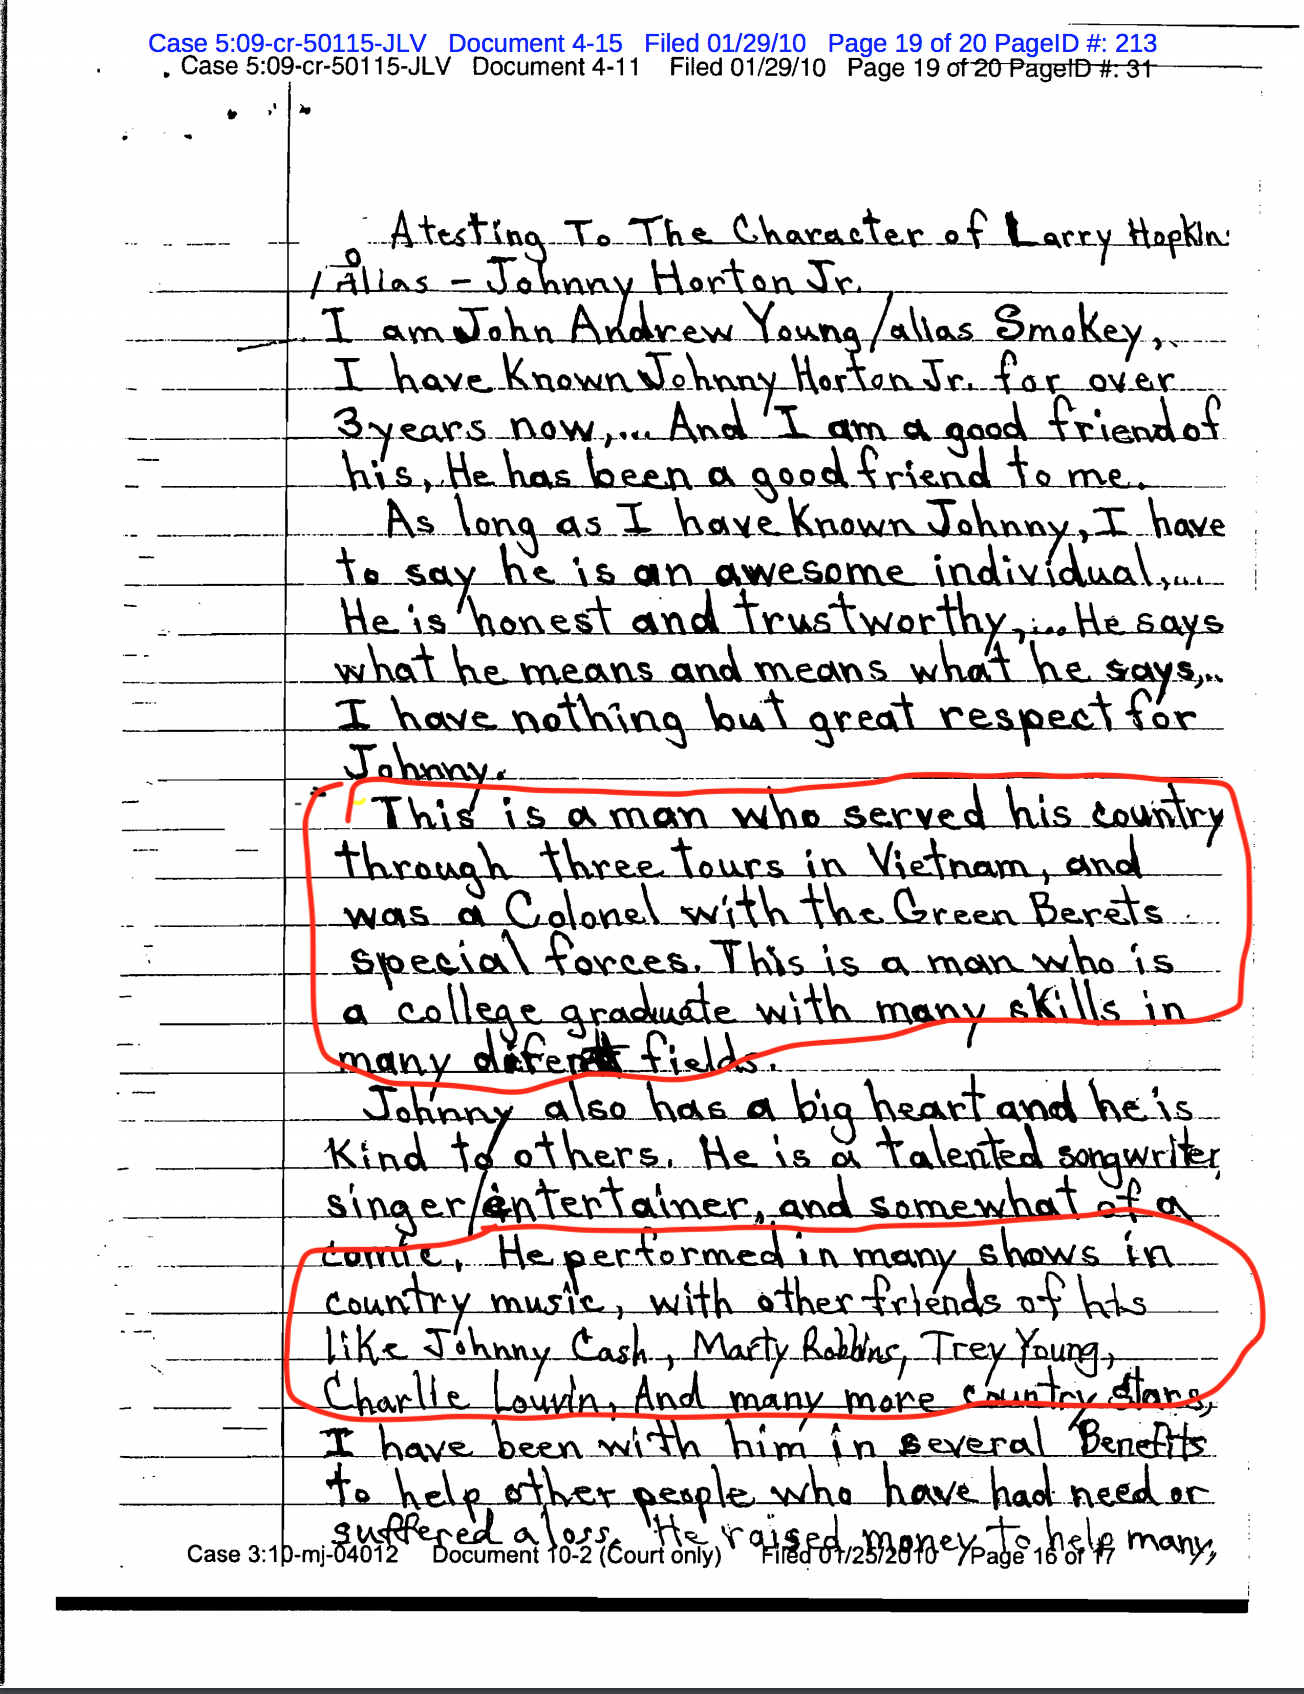 Case 5:09-cr-50115-JLV Document 4-15 Filed 01/29/10 Page 19 of 20 PageID #: 213
Case 5:09-cr-50115-JLV Document 4-11 Filed 01/29/10 Page 19 of 20 PageID #: 31
Atesting To The Character of Larry Hopkin
/ Alias - Johnny Horton Jr.
I am John Andrew Young/alias Smokey,
I have Known Johnny Horton Jr. for over
3 years now,... And I am a good friend of
his, He has been a good friend to me.
As long as I have Known Johnny, I have
to say he is an awesome individual,...
He is honest and trustworthy,... He says
what he means and means what he says,..
I have nothing but great respect for
Johnny.
This is a man who served his country
through three tours in Vietnam, and
was a Colonel with the Green Berets
special forces. This is a man who is
a college graduate with many skills in
many diferent fields.
Johnny also has a big heart and he is
Kind to others. He is a talented songwriter,
singer/entertainer, and somewhat of a
comic. He performed in many shows in
country music, with other friends of his
like Johnny Cash, Marty Robbins, Trey Young,
Charlie Louvin, And many more country stars,
I have been with him in several Benefits
to help other people who have had need or
suffered a loss. He raised money to help many,
Case 3:10-mj-04012 Document 10-2 (Court only) Filed 01/25/2010 Page 16 of 17